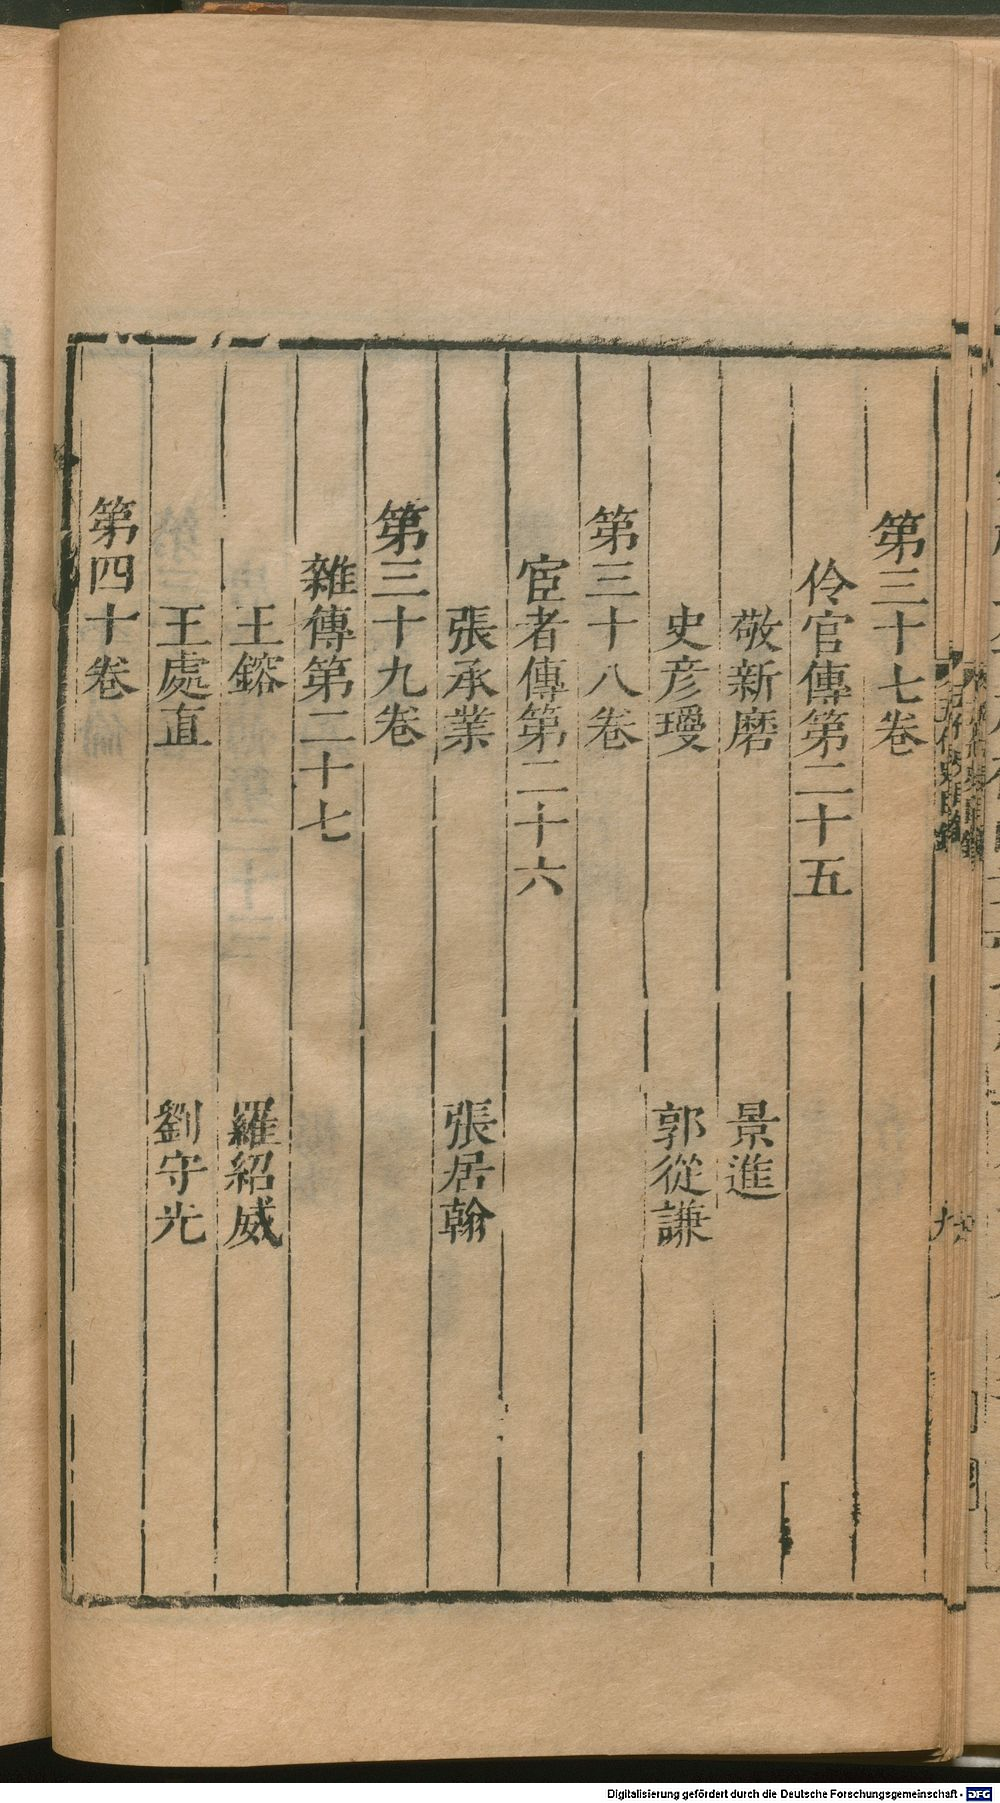 第三十七卷
伶官傳第二十五
敬新磨 景進
史彦瓊 郭從謙
第三十八卷
宦者傳第二十六
張承業 張居翰
第三十九卷
雜傳第二十七
王鎔 羅紹威
王處直 劉守光
第四十卷
Digitalisierung gefördert durch die Deutsche Forschungsgemeinschaft - DFG